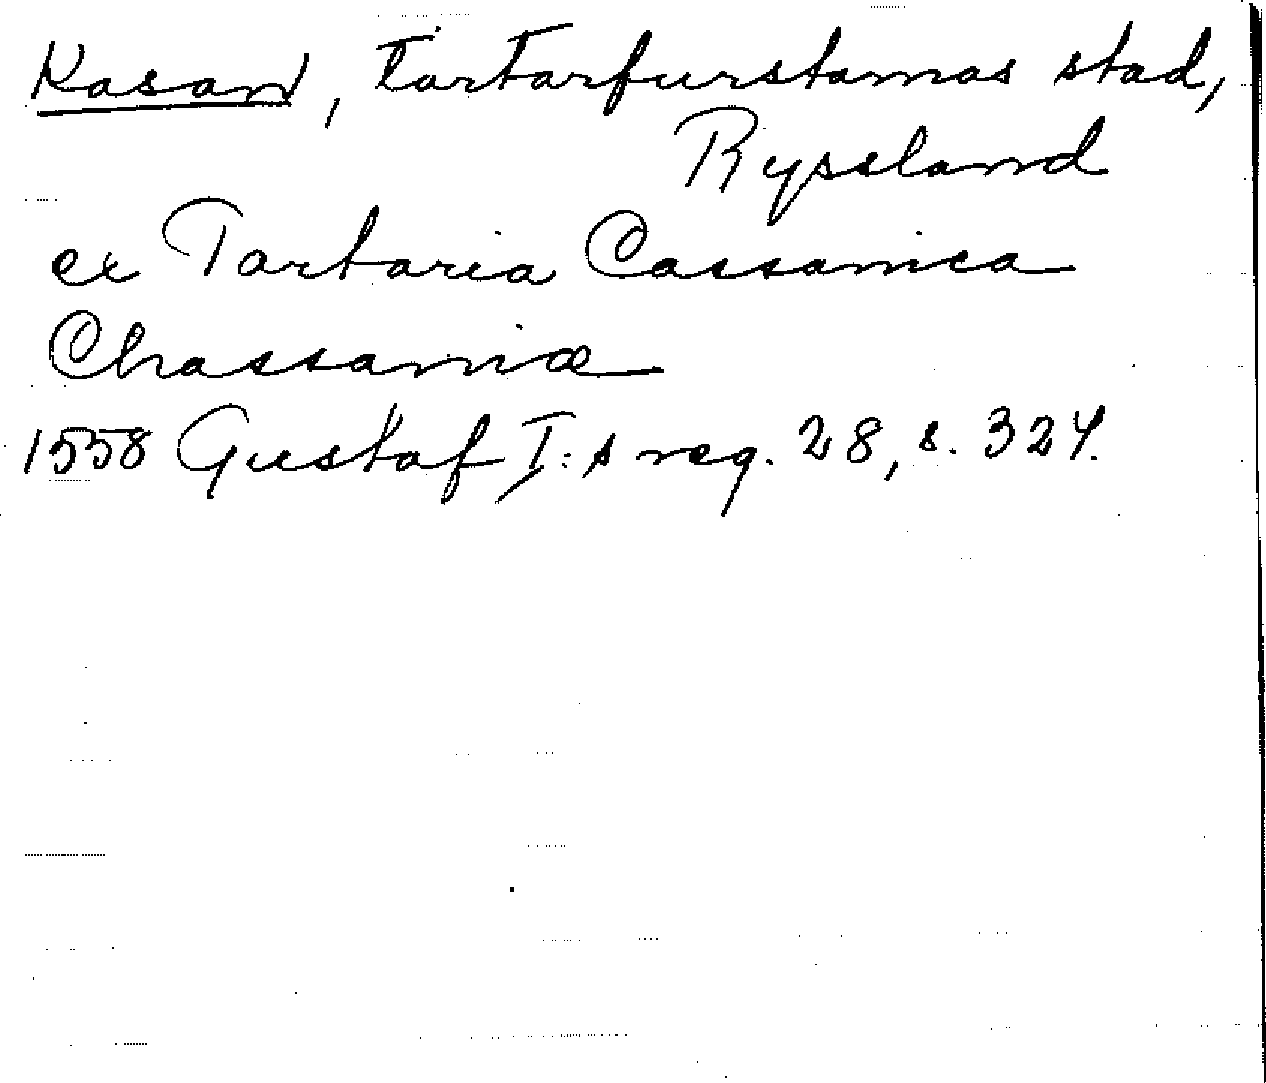 Kasan, Tartarfurstarnas stad,
Ryssland
ex Tartaria Cassanica
Chassaniæ
1558 Gustaf I:s reg. 28, s. 324.